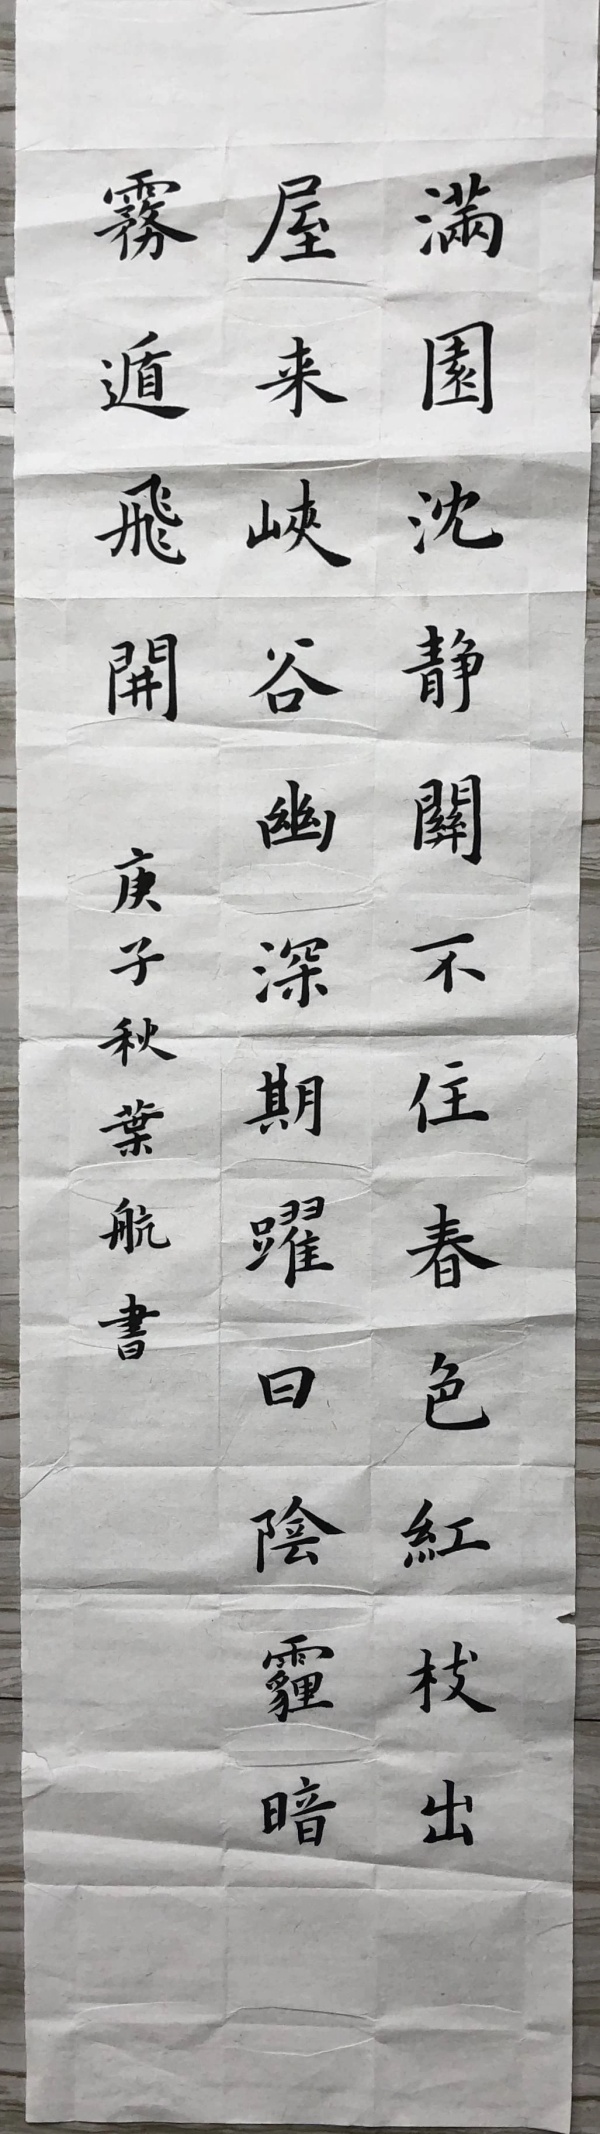 滿園沈靜關不住春色紅枝出
屋来峽谷幽深期躍日陰霾暗
霧遁飛開
庚子秋葉航書